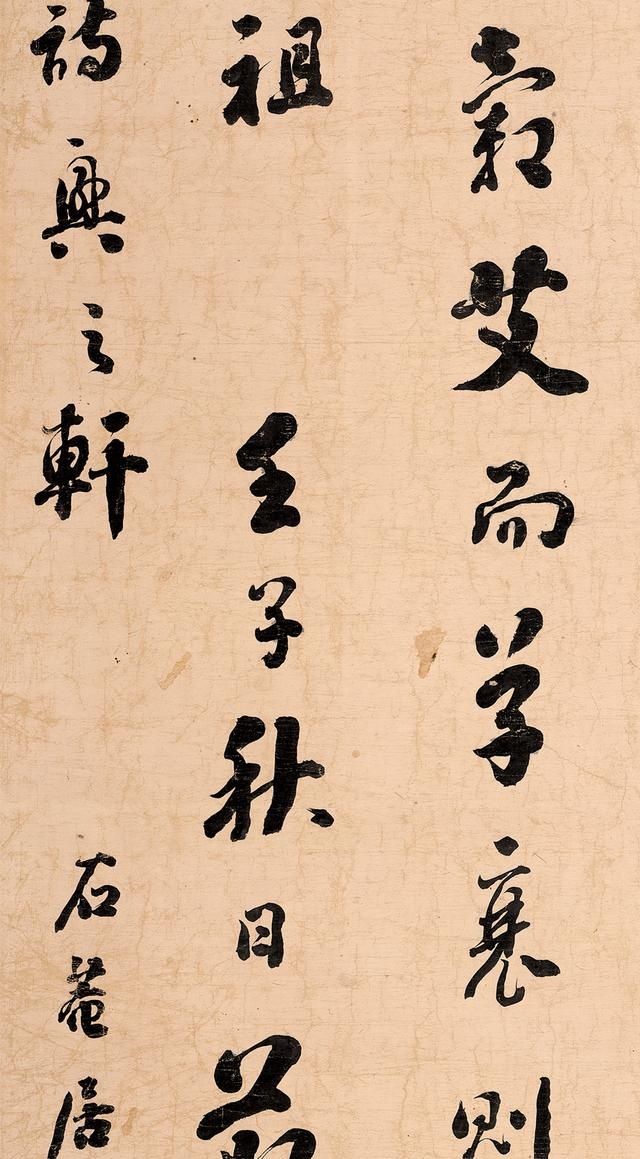 艾而學衰則
祖 壬子秋日
詩興之軒 石菴居